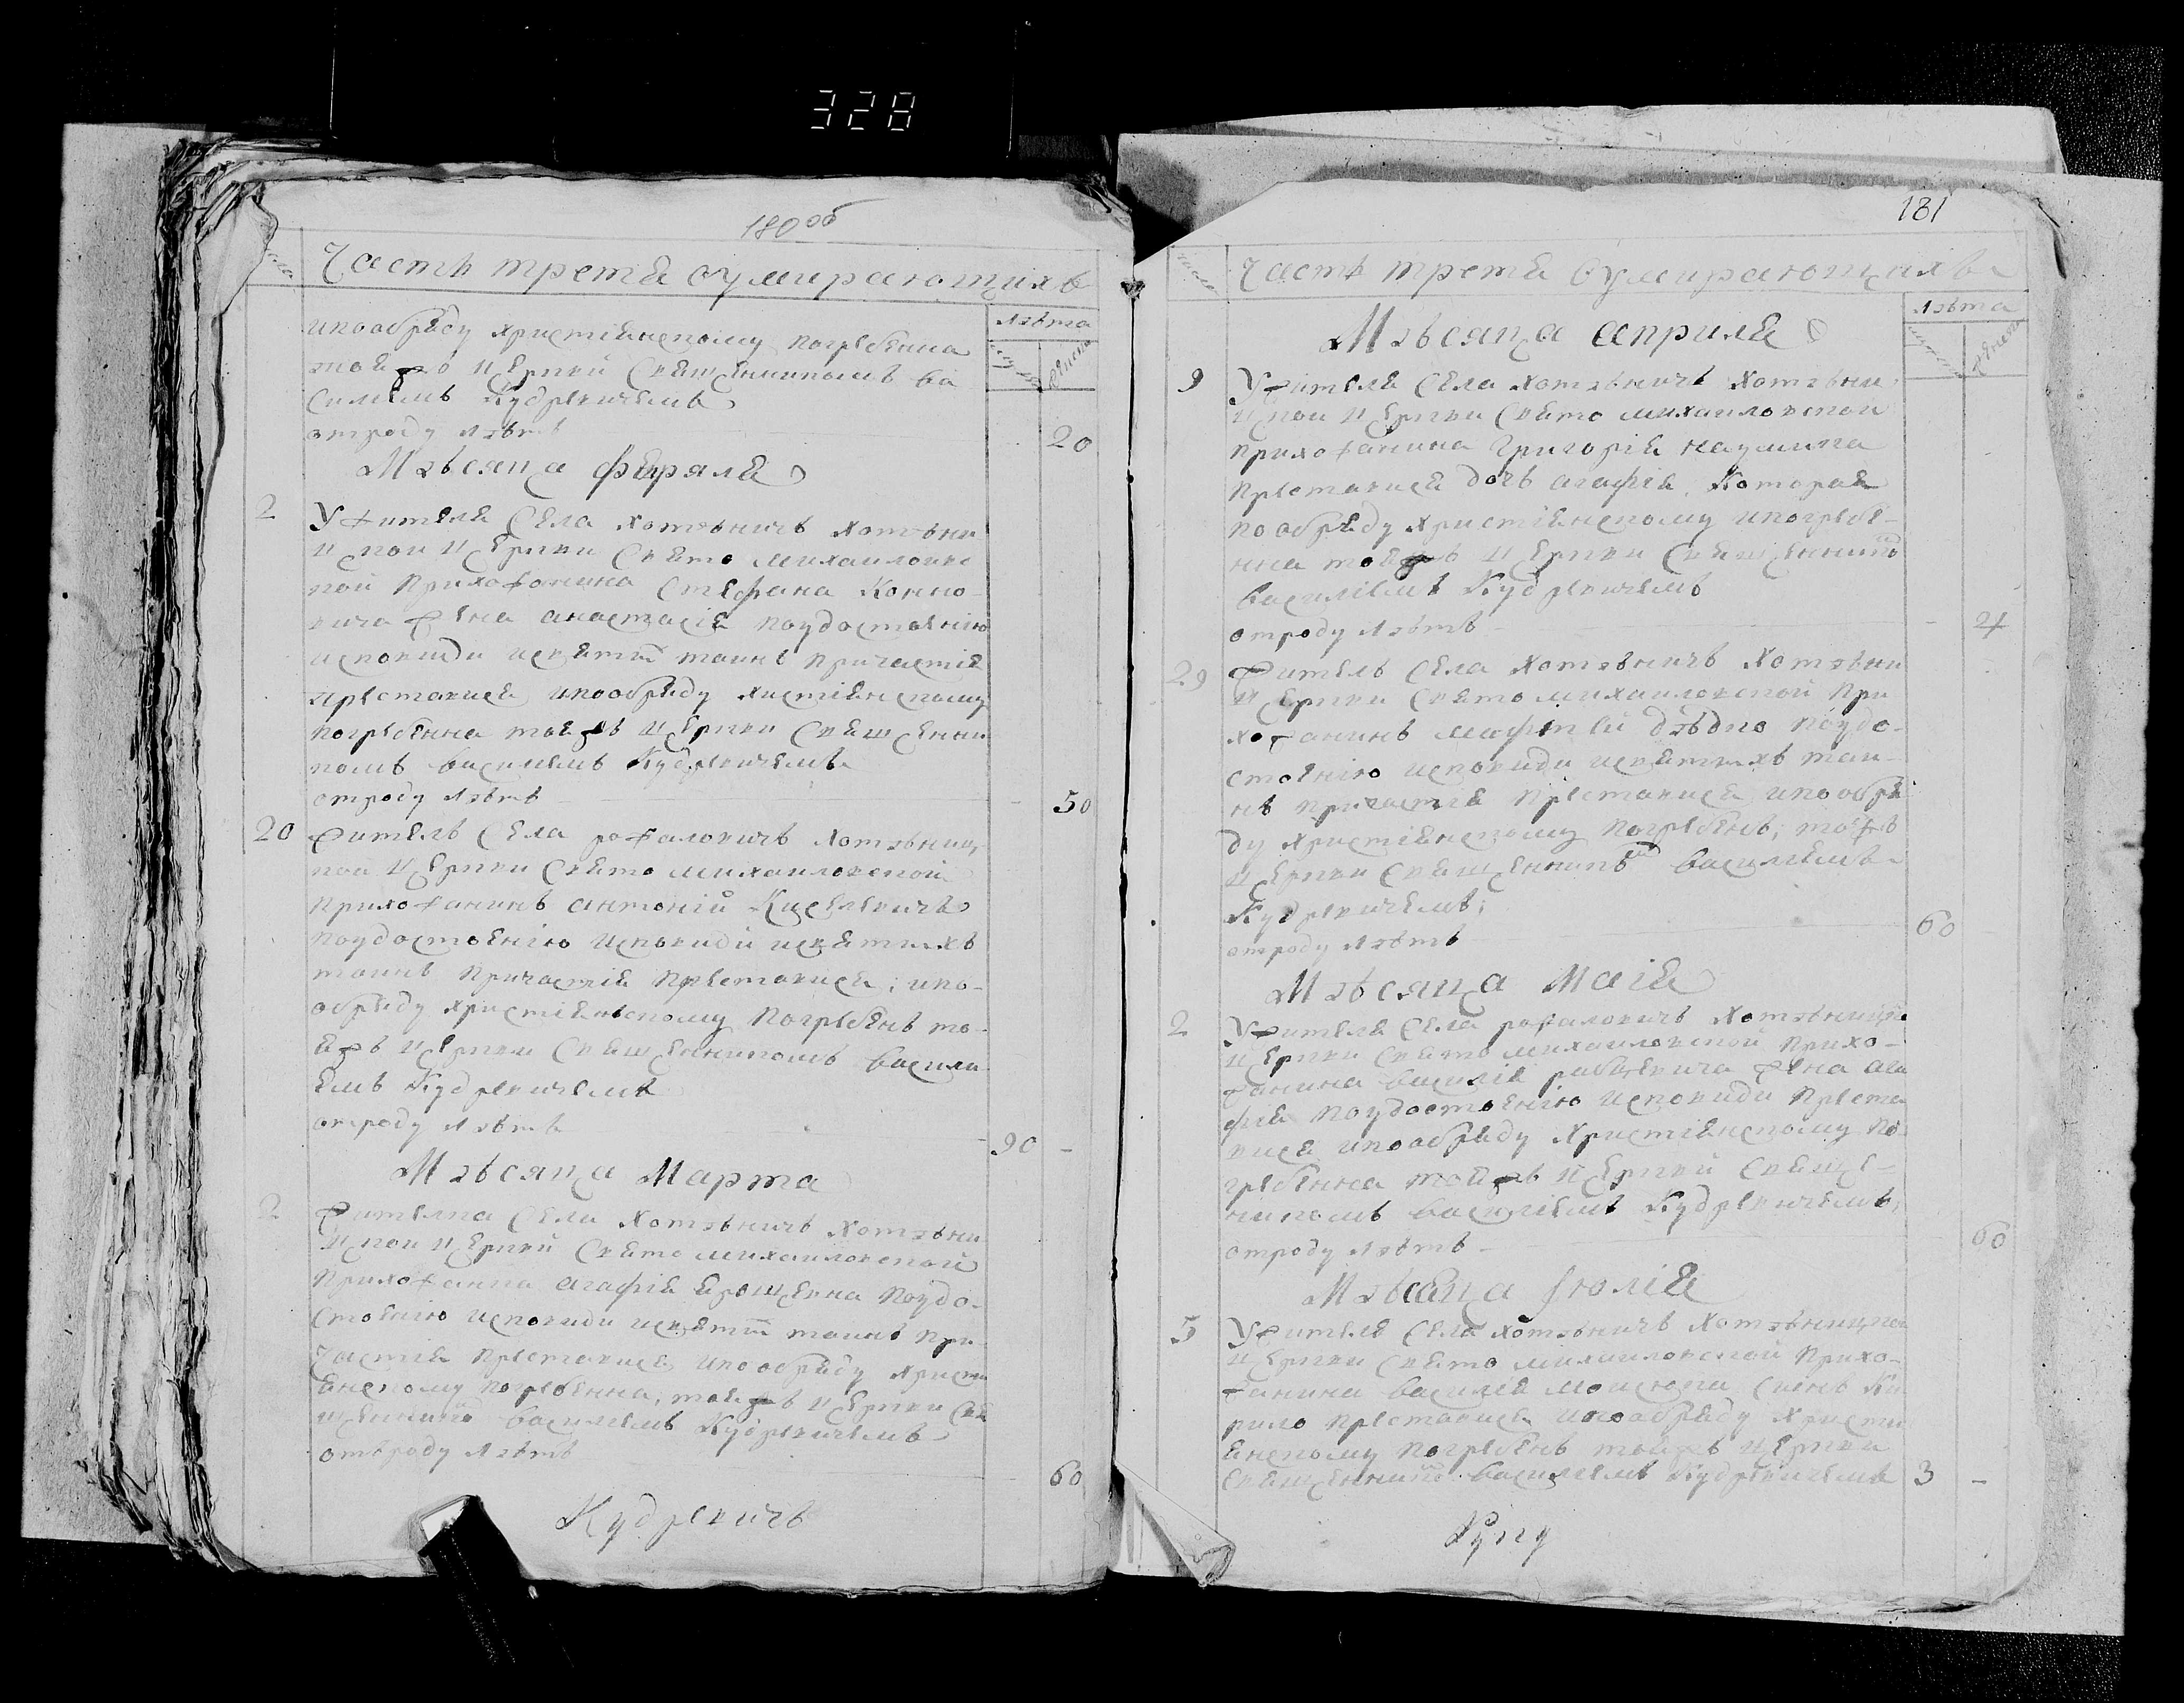 328
180 об
Часть третя оумирающихъ
Лѣта
женска
ипообряду християнскому погребенна
тояжъ церкви священникомъ Ва
силиемъ Кудревичемъ
отроду лѣтъ 20
Мѣсяца февраля
2 Ужителя села Хотѣничъ Хотѣни
цкои церкви Свято Михаиловс
кой прихожанина Стефана
жена анастасія поудостоенію
исповиди исвятих таинъ причастія
преставися ипообряду хистіянскому
погребенна тояжъ церкви священни
комъ василиемъ Кудревичемъ
отроду лѣтъ 50
20 житель села рожаловичъ Хотѣниц
кои церкви Свято Михаиловской
прихожанинъ антоній
поудостоенію исповиди исвятихъ
таинъ причастія преставися; ипо-
обряду християнскому погребенъ то-
яжъ церкви священникомъ васили
емъ Кудревичемъ
отроду лѣтъ 90
Мѣсяца Марта
2 жителка села Хотѣничъ Хотѣни
цкои церкви Свято Михаиловской
прихожанка агафія поудо-
стоенію исповиди исвятих таинъ при-
частія преставися ипообряду христи
янскому погребенна, тояжъ церкви свя
щенникō василиемъ Кудревичемъ
отвроду лѣтъ 60
Кудревичъ
181
число
Часть третя Оумирающихъ
Лѣта
женска
Мѣсяца априля
9 Ужителя села Хотѣничъ Хотѣни
цкои церкви Свято михаиловской
прихожанина Григорія наумика
преставися дочь агафія, Которая
пообряду християнскому ипогребе-
нна тояжъ церкви священникō
василіемъ Кудревичемъ
отроду лѣтъ
29 житель села Хотѣничъ Хотѣни
церкви Свято михаиловской при
хожанинъ дѣдко поудо-
стоенію исповиди исвятихъ таи-
нъ причастія преставися ипообря
ду християнскому погребенъ; тояжъ
церкви священникō василиемъ
Кудревичемъ;
отроду лѣтъ 60
Мѣсяца Маія
2 Ужителя села рожаловичъ
церкви Свято михаиловской прихо-
жанина василія жена ага
фія поудостоенію исповиди преста
вися ипообряду християнскому по
гребенна тояжъ церкви священ-
никомъ василіемъ Кудревичемъ,
отроду лѣтъ 60
Мѣсяца Іюлія
5 Ужителя села Хотѣничъ Хотѣницкои
церкви Свято михаиловской прихо-
жанина василія синъ Ки
рило преставися ипообряду христи
янскому погребенъ тояжъ церкви
священникō василиемъ Кудревичемъ 3